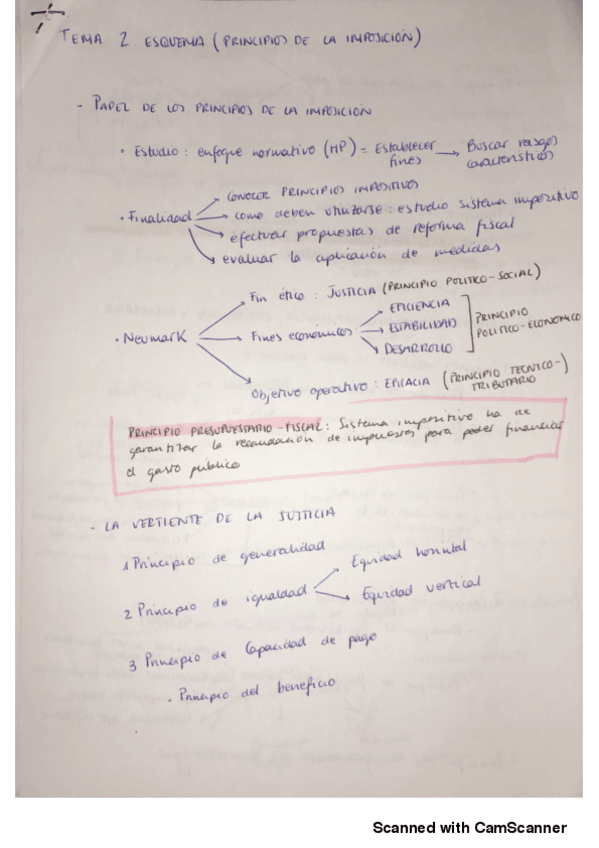 TEMA 2. ESQUEMA (PRINCIPIOS DE LA IMPOSICIÓN)
- PAPEL DE LOS PRINCIPIOS DE LA IMPOSICIÓN
• Estudio : enfoque normativo (HP) = Establecer fines → Buscar rasgos característicos
• Finalidad
CONOCER PRINCIPIOS IMPOSITIVOS
como deben utilizarse : estudio sistema impositivo
efectuar propuestas de reforma fiscal
evaluar la aplicación de medidas
• Neumark
Fin ético : JUSTICIA (PRINCIPIO POLITICO-SOCIAL)
Fines económicos
EFICIENCIA
ESTABILIDAD
DESARROLLO
PRINCIPIO
POLITICO-ECONOMICO
Objetivo operativo : EFICACIA (PRINCIPIO TECNICO-
TRIBUTARIO)
PRINCIPIO PRESUPUESTARIO-FISCAL : Sistema impositivo ha de
garantizar la recaudación de impuestos para poder financiar
el gasto público
- LA VERTIENTE DE LA JUSTICIA
1 Principio de generalidad
2 Principio de igualdad
Equidad horizontal
Equidad vertical
3 Principio de Capacidad de pago
• Principio del beneficio
Scanned with CamScanner